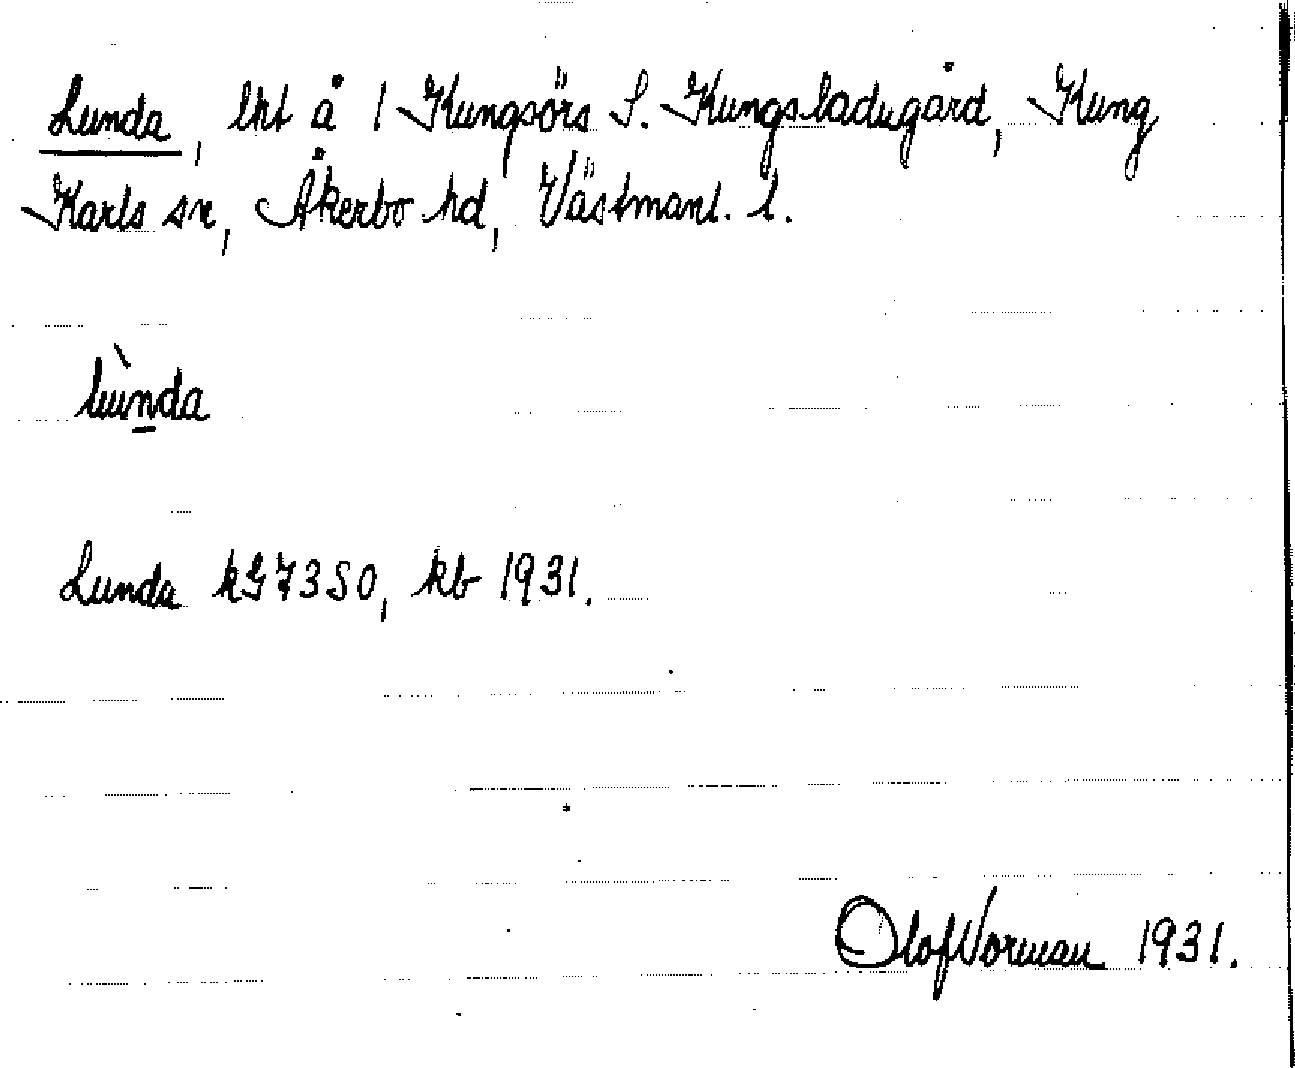 Lunda, lht å 1 Kungsörs S. Kungsladugård, Kung
Karls sn, Åkerbo hd, Västmanl. l.
lùnda
Lunda kG7350, kb 1931.
Olof Vorman 1931.